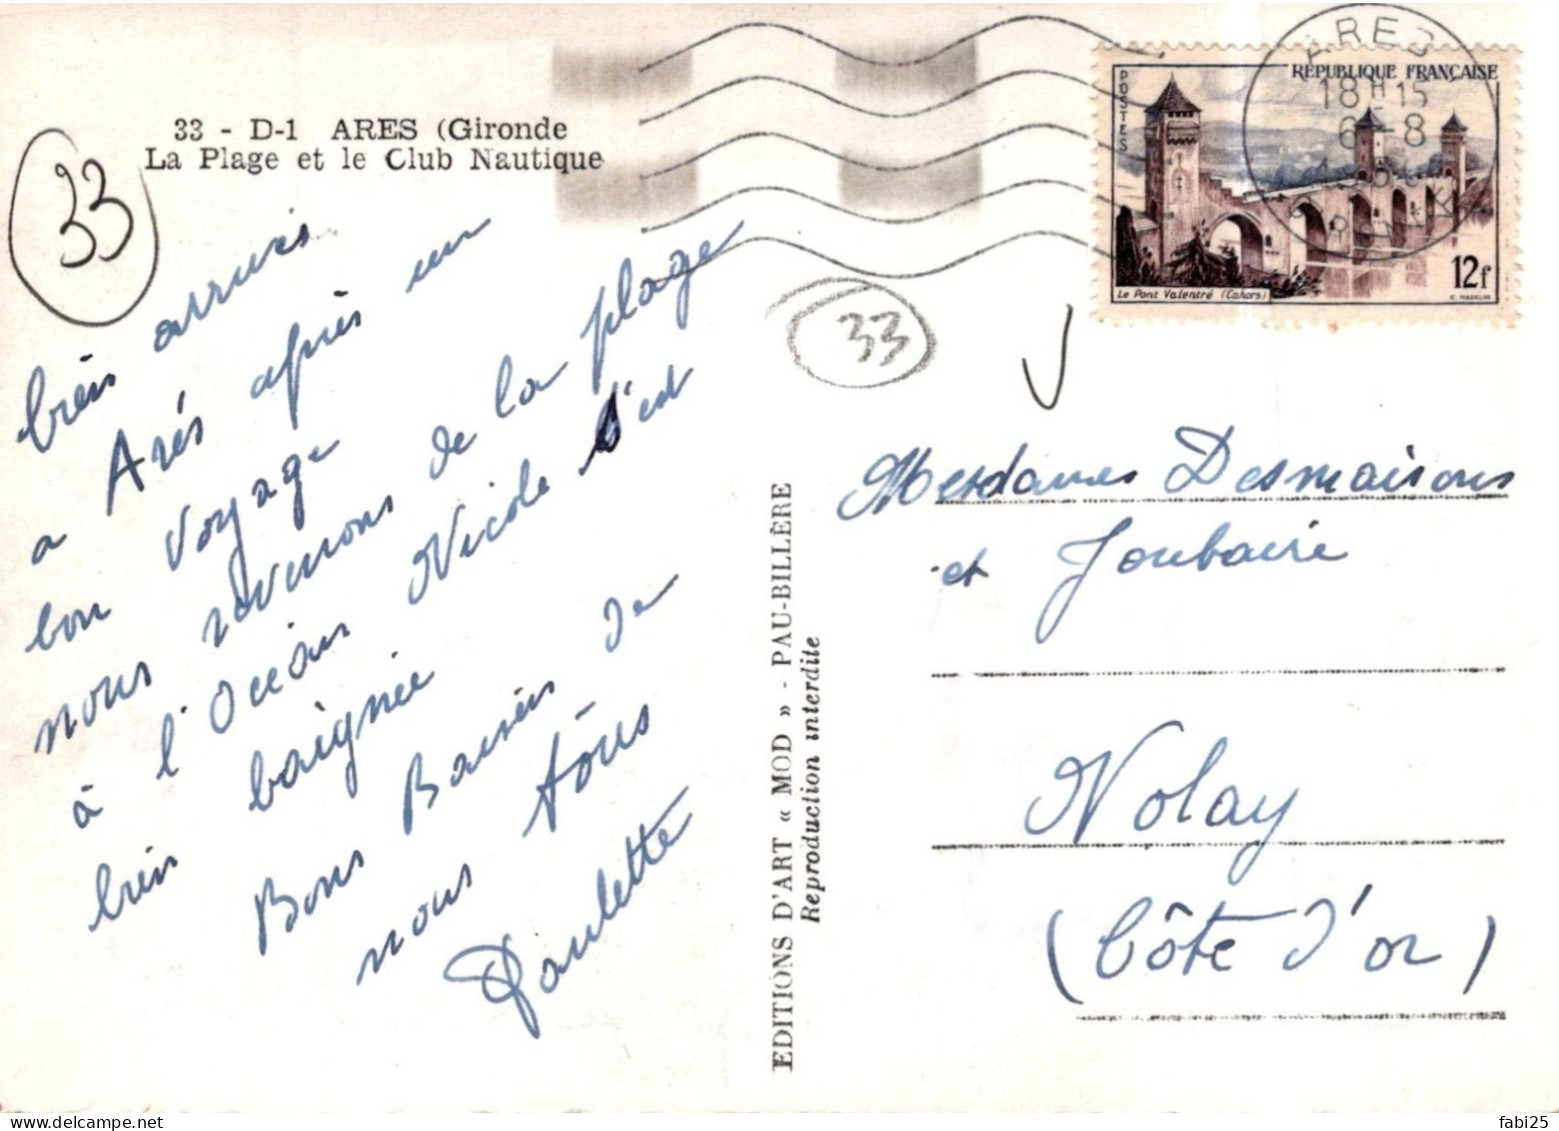 33 - D-1 ARES (Gironde
La Plage et le Club Nautique
33
bien arrivés
a Arés après un
bon voyage
nous revenons de la plage
à l'Océan Nicole s'est
bien baignée
Bons Baisers de
nous tous
Paulette
EDITIONS D'ART « MOD » - PAU-BILLÈRE
Reproduction interdite
33
RÉPUBLIQUE FRANÇAISE
POSTES
Le Pont Valentré (Cahors)
12f
C. MAZELIN
ARES
18H15
6-8
Mesdames Desmaisons
et Joubaire
Nolay
(Côte d'or)
fabi25